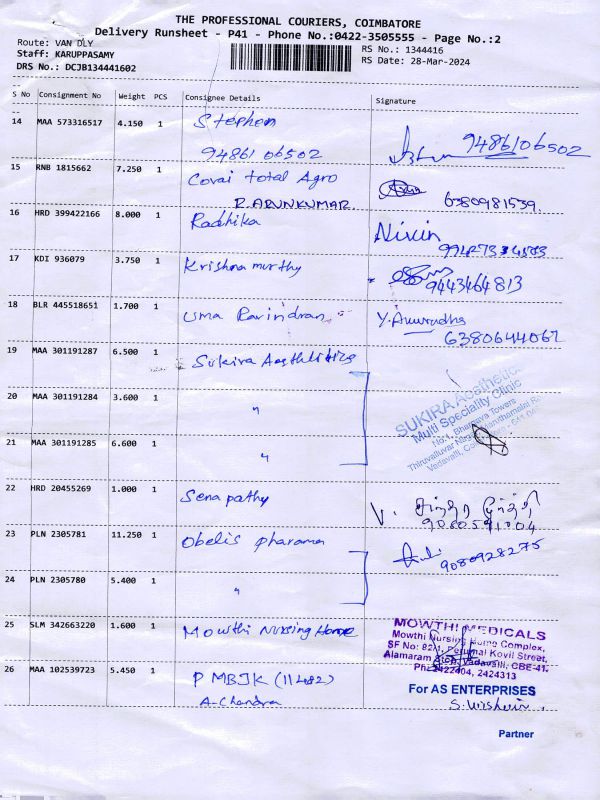 THE PROFESSIONAL COURIERS, COIMBATORE
Delivery Runsheet - P41 - Phone No.:0422-3505555 - Page No.:2
Route: VAN DLY
RS No.: 1344416
Staff: KARUPPASAMY
RS Date: 28-Mar-2024
DRS No.: DCJB134441602
S No Consignment No Weight PCS Consignee Details Signature
14 MAA 573316517 4.150 1 Stephen 9486106502
94861 06502
15 RNB 1815662 7.250 1 Covai total Agro 6380981539.
R. ARUNKUMAR
16 HRD 399422166 8.000 1 Radhika Nixin
17 KDI 936079 3.750 1 Krishna murthy 9443464813
18 BLR 445518651 1.700 1 Uma Ravindran Y. Anuradha
6380644067
19 MAA 301191287 6.500 1 Sukira
20 MAA 301191284 3.600 1 "
SUKIRA Aesthetic
Multi Speciality Clinic
No:1, Bhagava Towers
Thiruvalluvar Nagar
Vadavalli,
21 MAA 301191285 6.600 1 "
22 HRD 20455269 1.000 1 Senapathy V.
23 PLN 2305781 11.250 1 Obelis pharama 9080928275
24 PLN 2305780 5.400 1 "
25 SLM 342663220 1.600 1 Mowthi Nursing Home
MOWTHI MEDICALS
Mowthi Nursing Home Complex,
SF No: 82/1, Perumal Kovil Street,
Alamaram Stop, Vadavalli, CBE-41.
Ph: 2422404, 2424313
26 MAA 102539723 5.450 1 PMBJK (11482)
A. Chandra
For AS ENTERPRISES
Partner